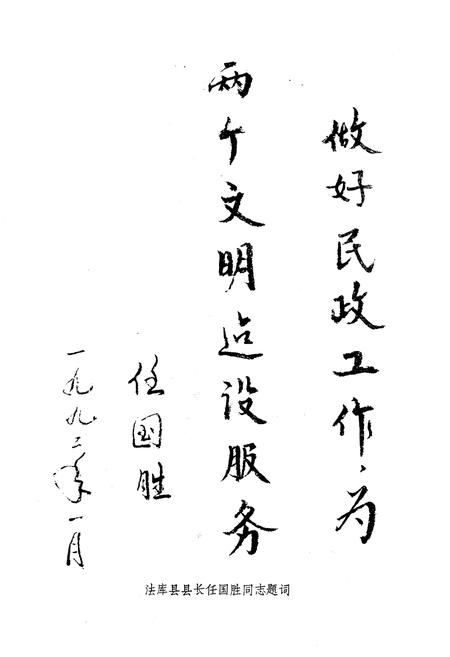 做好民政工作，为
两个文明迠设服务
任国胜
一九九二年一月
法库县县长任国胜同志题词